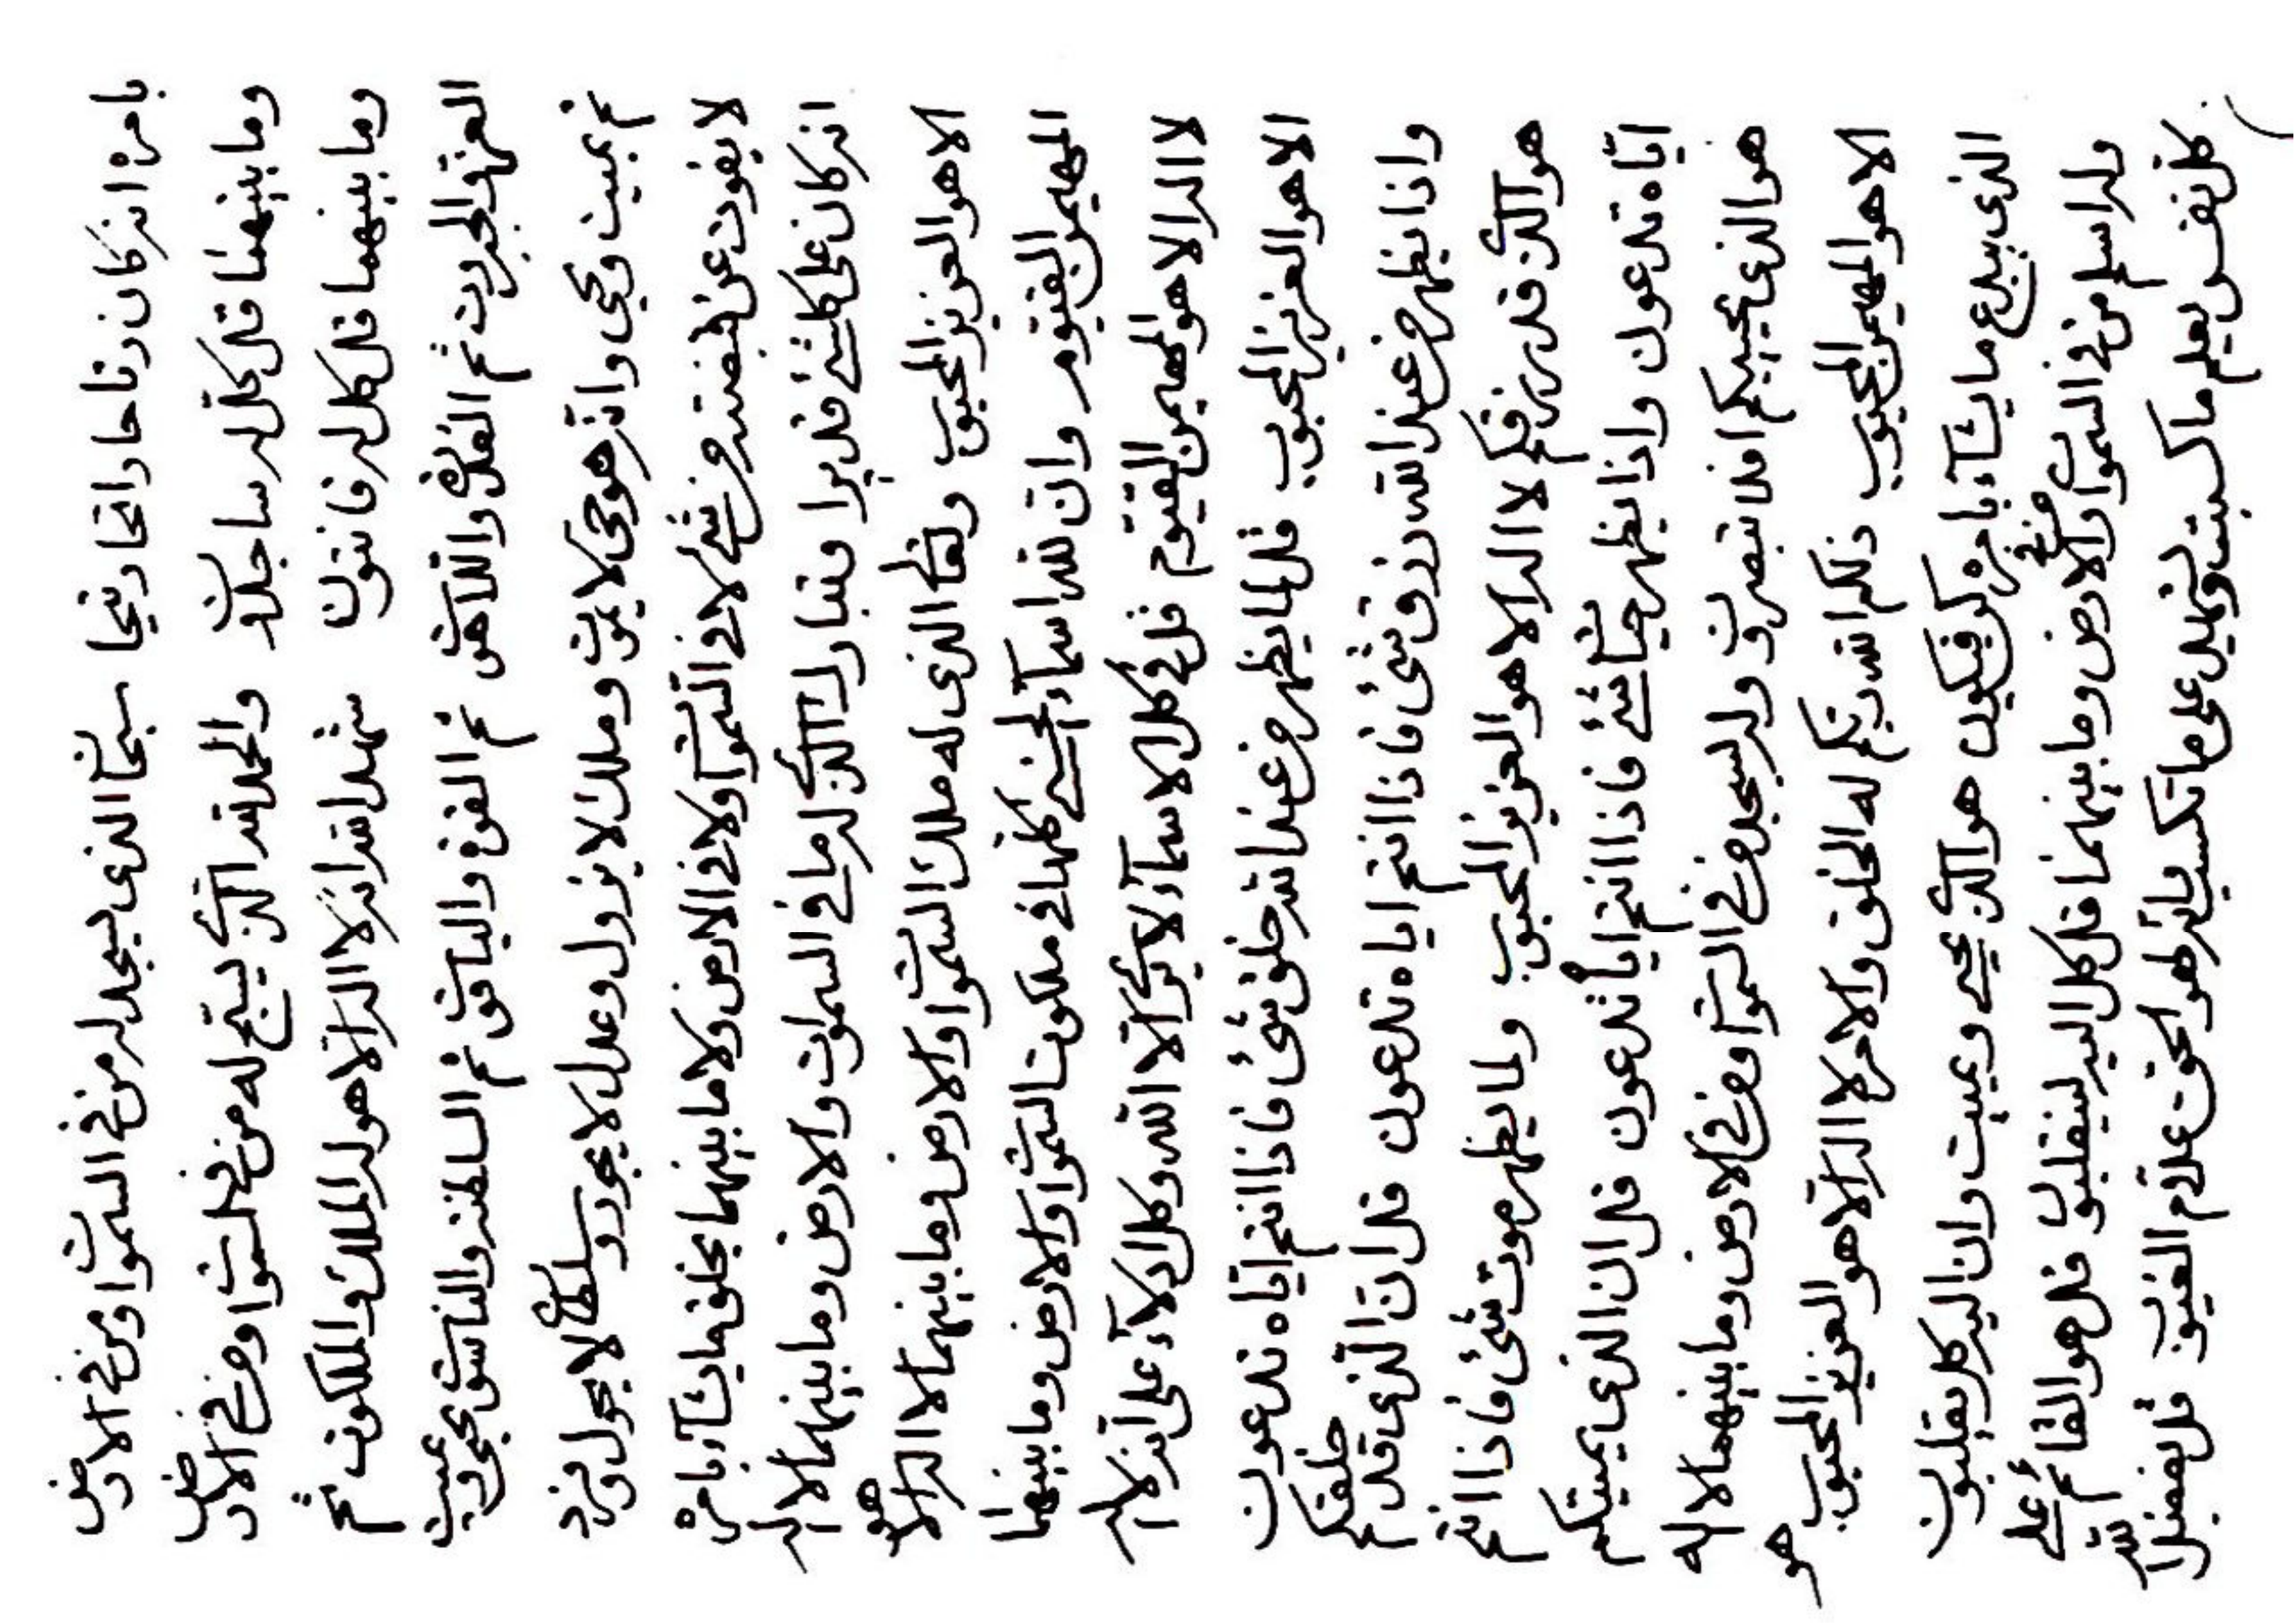 بامره انه كان دتاحا داتحا دتيحا سبحان الذى يسجد له من فى السموات ومن فى الارض
وما بينهما قل كل له ساجدون والحمد لله الذى يسبح له من فى السموات ومن فى الارض
وما بينهما قل كل له قانتون شهد الله انه لا اله الا هو له الملك والملكوت ثم
العز والجبروت ثم القدرة واللاهوت ثم القوة والياقوت ثم السلطنة والناسوت يحيى ويميت
ثم يميت ويحيى وانه هو حى لا يموت وملك لا يزول وعدل لا يجور وسلطان لا يحول وفرد
لا يفوت عن قبضته من شئ لا فى السموات ولا فى الارض ولا ما بينهما يخلق ما يشآء بامره
انه كان على كلشئ قديرا وتبارك الذى له ما فى السموات والارض وما بينهما لا اله
الا هو العزيز المحبوب وتعالى الذى له ملك السموات والارض وما بينهما لا اله الا هو
المهيمن القيوم وان لله اسمآء الحسنى كلها فى ملكوت السموات والارض وما بينهما
لا اله الا هو المهيمن القيوم قل فى كل الاسمآء لا يرى الا الله وكل ادلآء على انه لا اله
الا هو العزيز المحبوب قل لما يظهر من عند الله خلق شئ فاذا انتم اياه تدعون
واذا يظهر من عند الله رزق شئ فاذا انتم اياه تدعون قل ان الذى قد خلقكم
هو الذى قد رزقكم لا اله الا هو العزيز المحبوب ولما يظهر موت شئ فاذا انتم
اياه تدعون واذا يظهر حيات شئ فاذا انتم اياه تدعون قل ان الذى يميتكم
هو الذى يحييكم افلا تبصرون وله يسجد من فى السموات ومن فى الارض وما بينهما لا اله
الا هو المهيمن المحبوب ذلكم الله ربكم له الخلق والامر لا اله الا هو العزيز المحبوب هو
الذى يبدع ما يشآء بامره كن فيكون هو الذى يحيى ويميت وان اليه كل يقلبون
وله اسلم من فى السموات ومن فى الارض وما بينهما قل كل اليه لينقلبون قل هو القائم على
كل نفس يعلم ما كسبت وشهيد على ما تكسب انه لهو الحق علام الغيوب قل يفصل الله